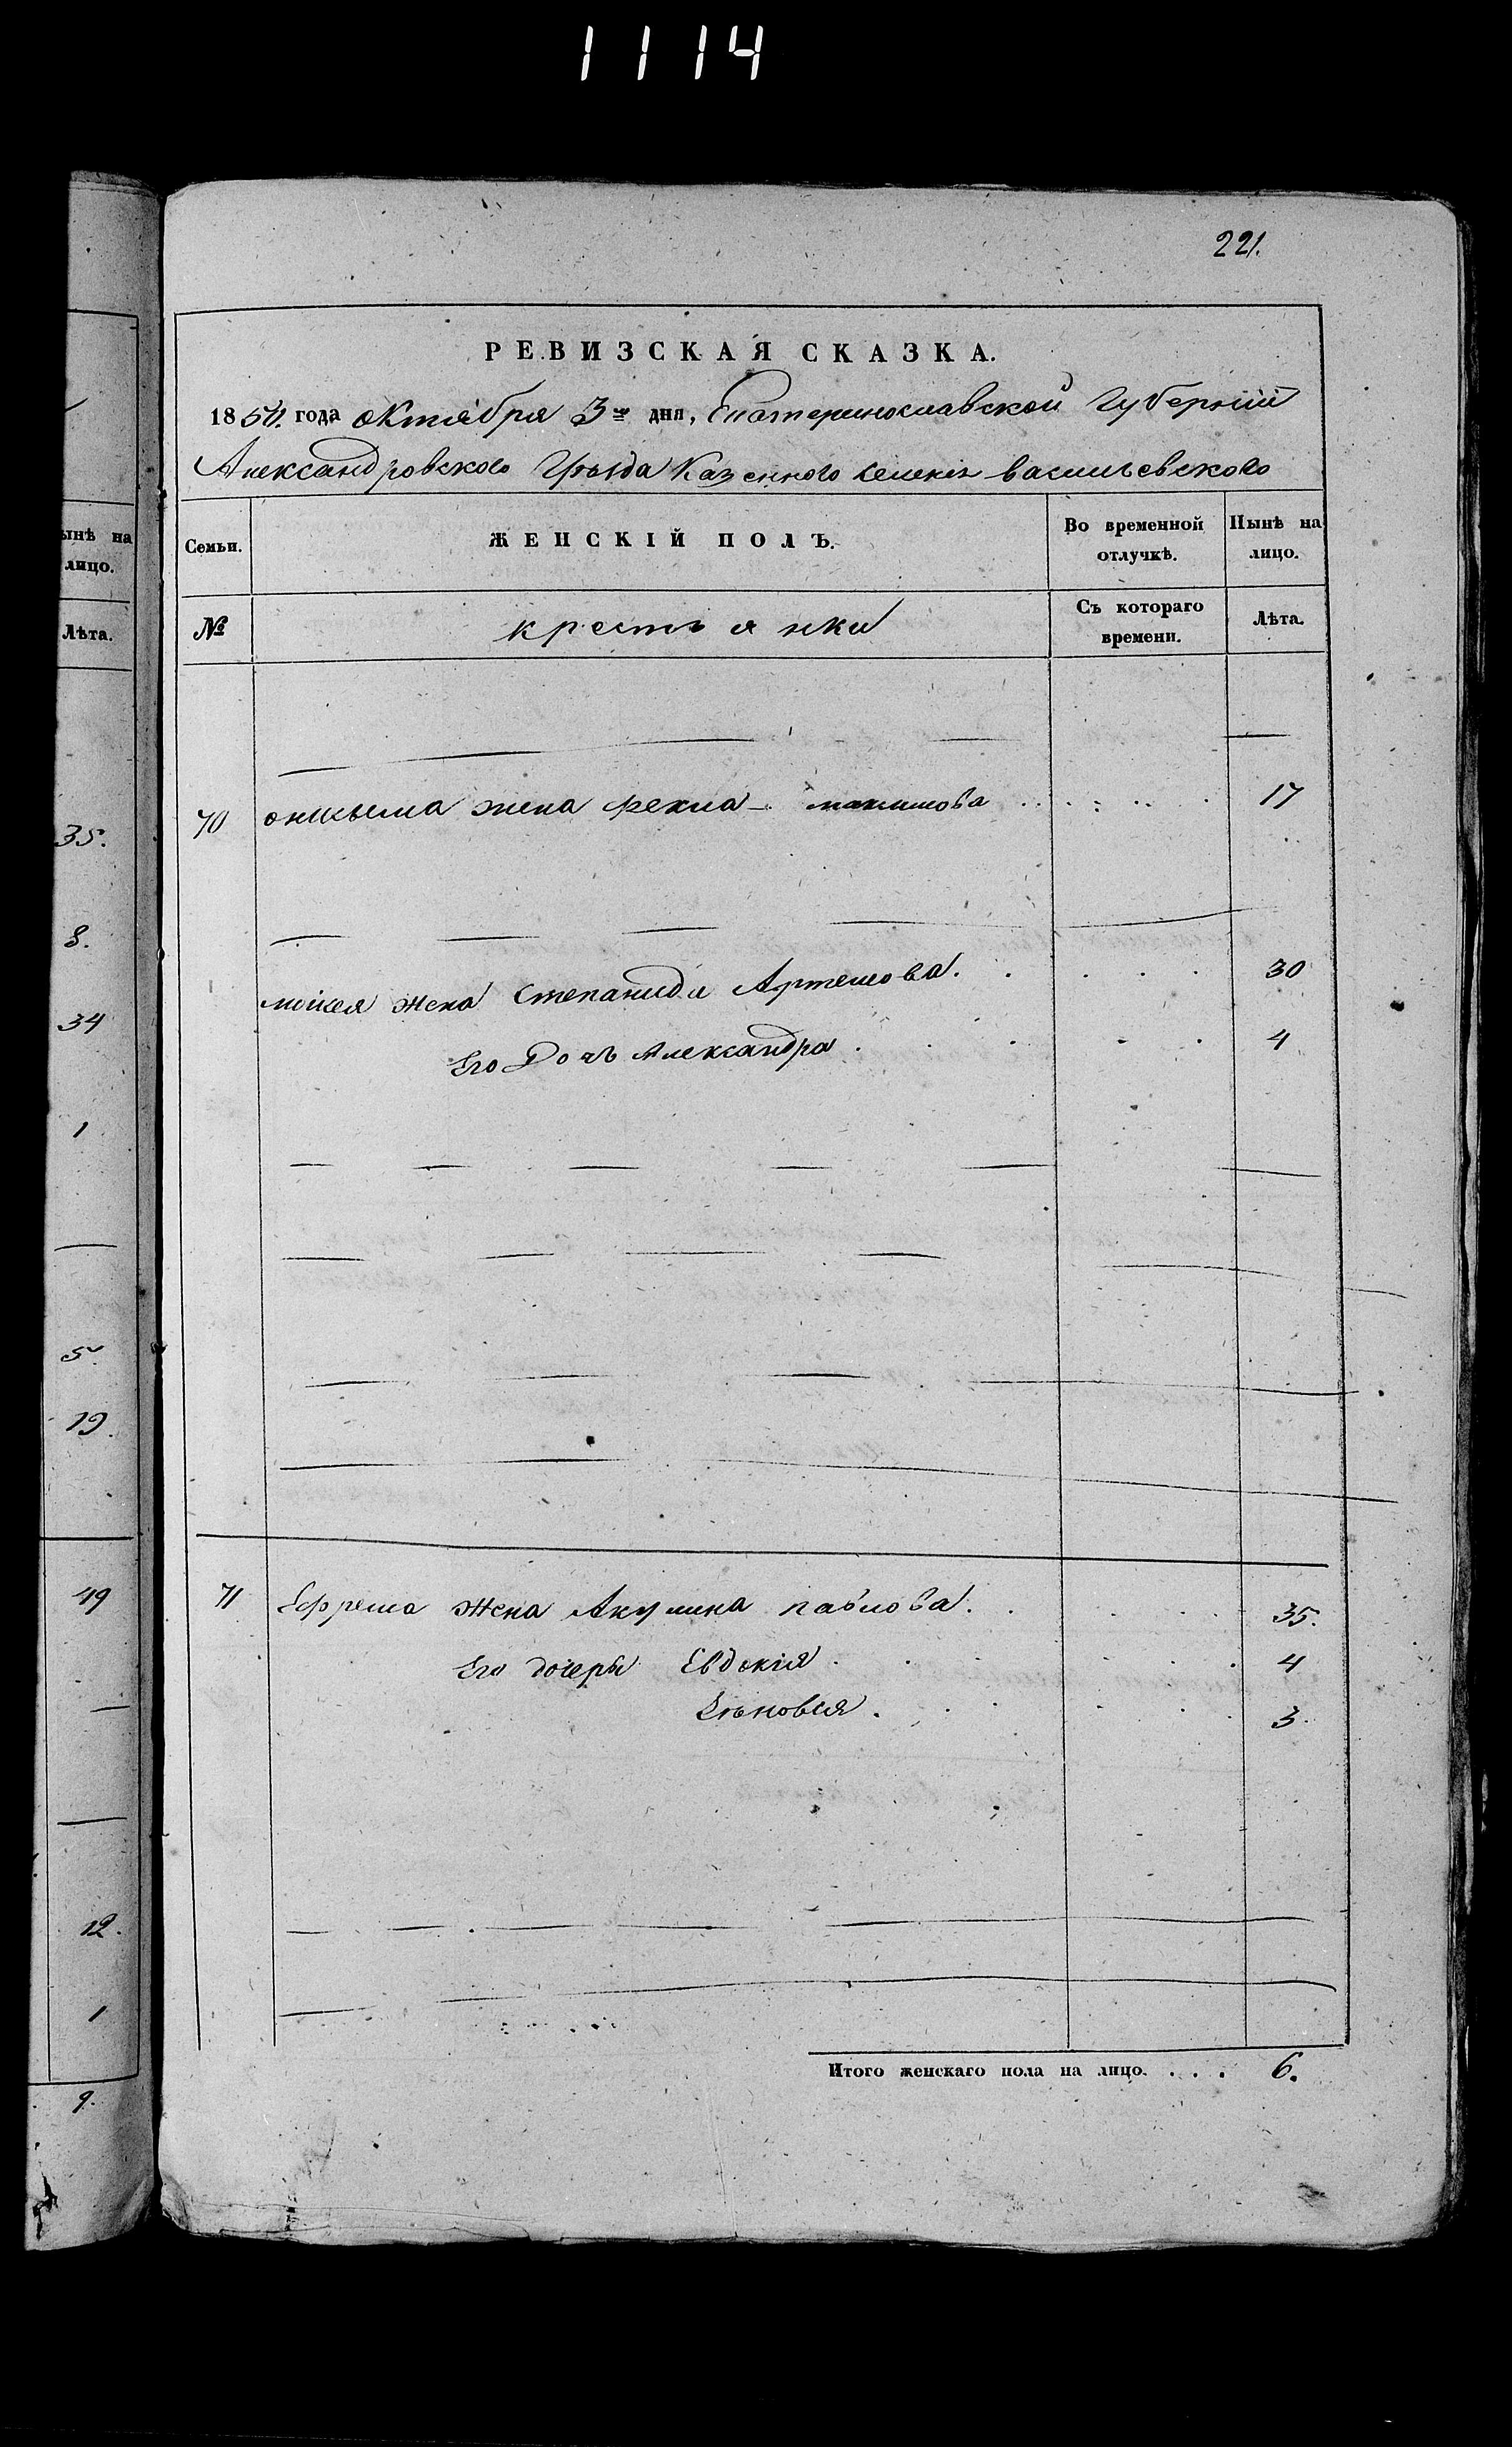 1114
221.
РЕВИЗСКАЯ СКАЗКА.
1850. года октября 3го дня, Екатеринославской Губернии
Александровского Уѣзда Казенного селения васильевского
Семьи.
ЖЕНСКІЙ ПОЛЪ.
Во временной отлучкѣ.
Нынѣ на лицо.
№
крестьянки
Съ котораго времени.
Лѣта.
70 жена фекла максимова 17
мойсея жена Степанида Артемова. 30
Его Дочь Александра. 4
71 Ефрема жена Акулина павлова. 35.
Его дочери Евдокія. 4
Зѣновия. 3.
Итого женскаго пола на лицо. . . . 6.
ынѣ на
лицо.
Лѣта.
35.
8.
34
1
5.
19.
49
12.
1
9.